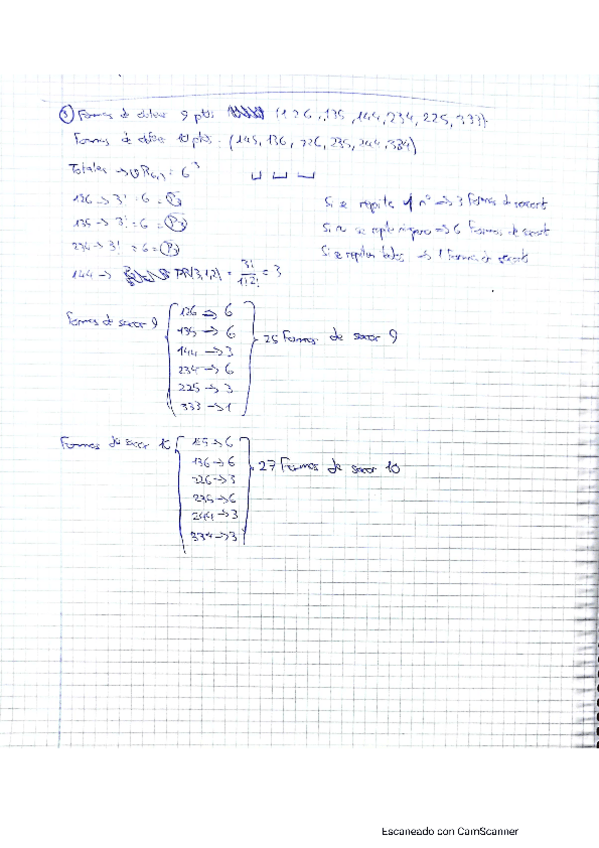 ③ Formas de obtener 9 ptos (126, 135, 144, 234, 225, 333)
Formas de obtener 10 ptos: (145, 136, 226, 235, 244, 334)
Totales → VR6,3 = 6³
126 → 3! = 6 = P3
135 → 3! = 6 = P3
234 → 3! = 6 = P3
144 → PR(3,1,2) = 3!/1!2! = 3
Si se repite 1 nº → 3 formas de
Si no se repite ninguno → 6 Formas de
Si se repiten todos → 1 Forma de
Formas de sacar 9
126 → 6
135 → 6
144 → 3
234 → 6
225 → 3
333 → 1
25 Formas de sacar 9
Formas de sacar 10
145 → 6
136 → 6
226 → 3
235 → 6
244 → 3
334 → 3
27 Formas de sacar 10
Escaneado con CamScanner